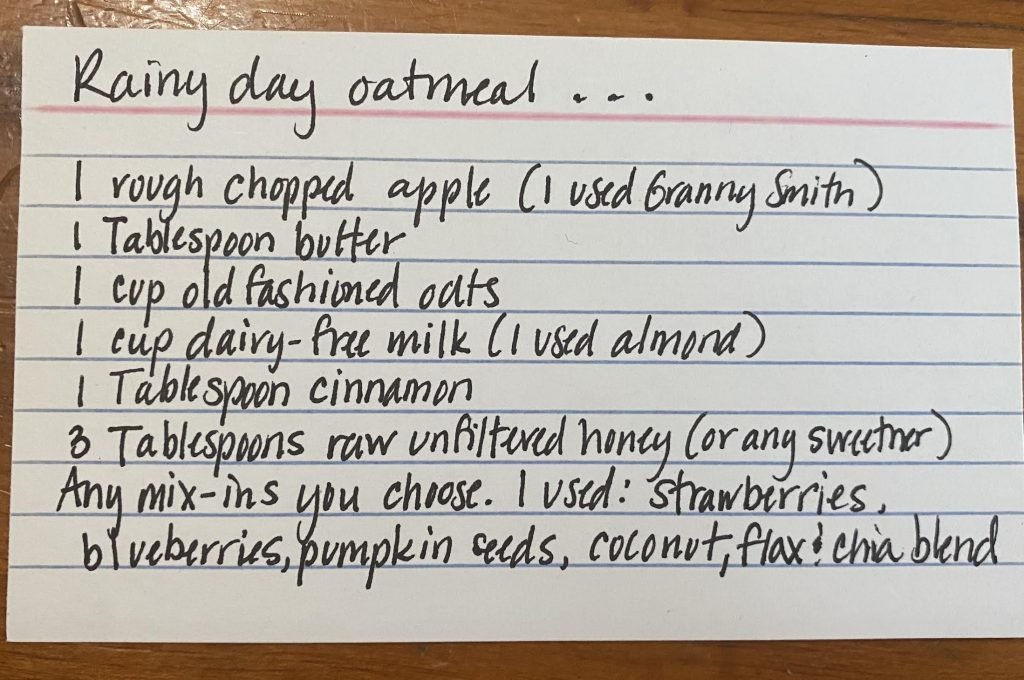 Rainy day oatmeal ...
1 rough chopped apple (I used Granny Smith)
1 Tablespoon butter
1 cup old fashioned oats
1 cup dairy-free milk (I used almond)
1 Tablespoon cinnamon
3 Tablespoons raw unfiltered honey (or any sweetner)
Any mix-ins you choose. I used: strawberries,
blueberries, pumpkin seeds, coconut, flax & chia blend